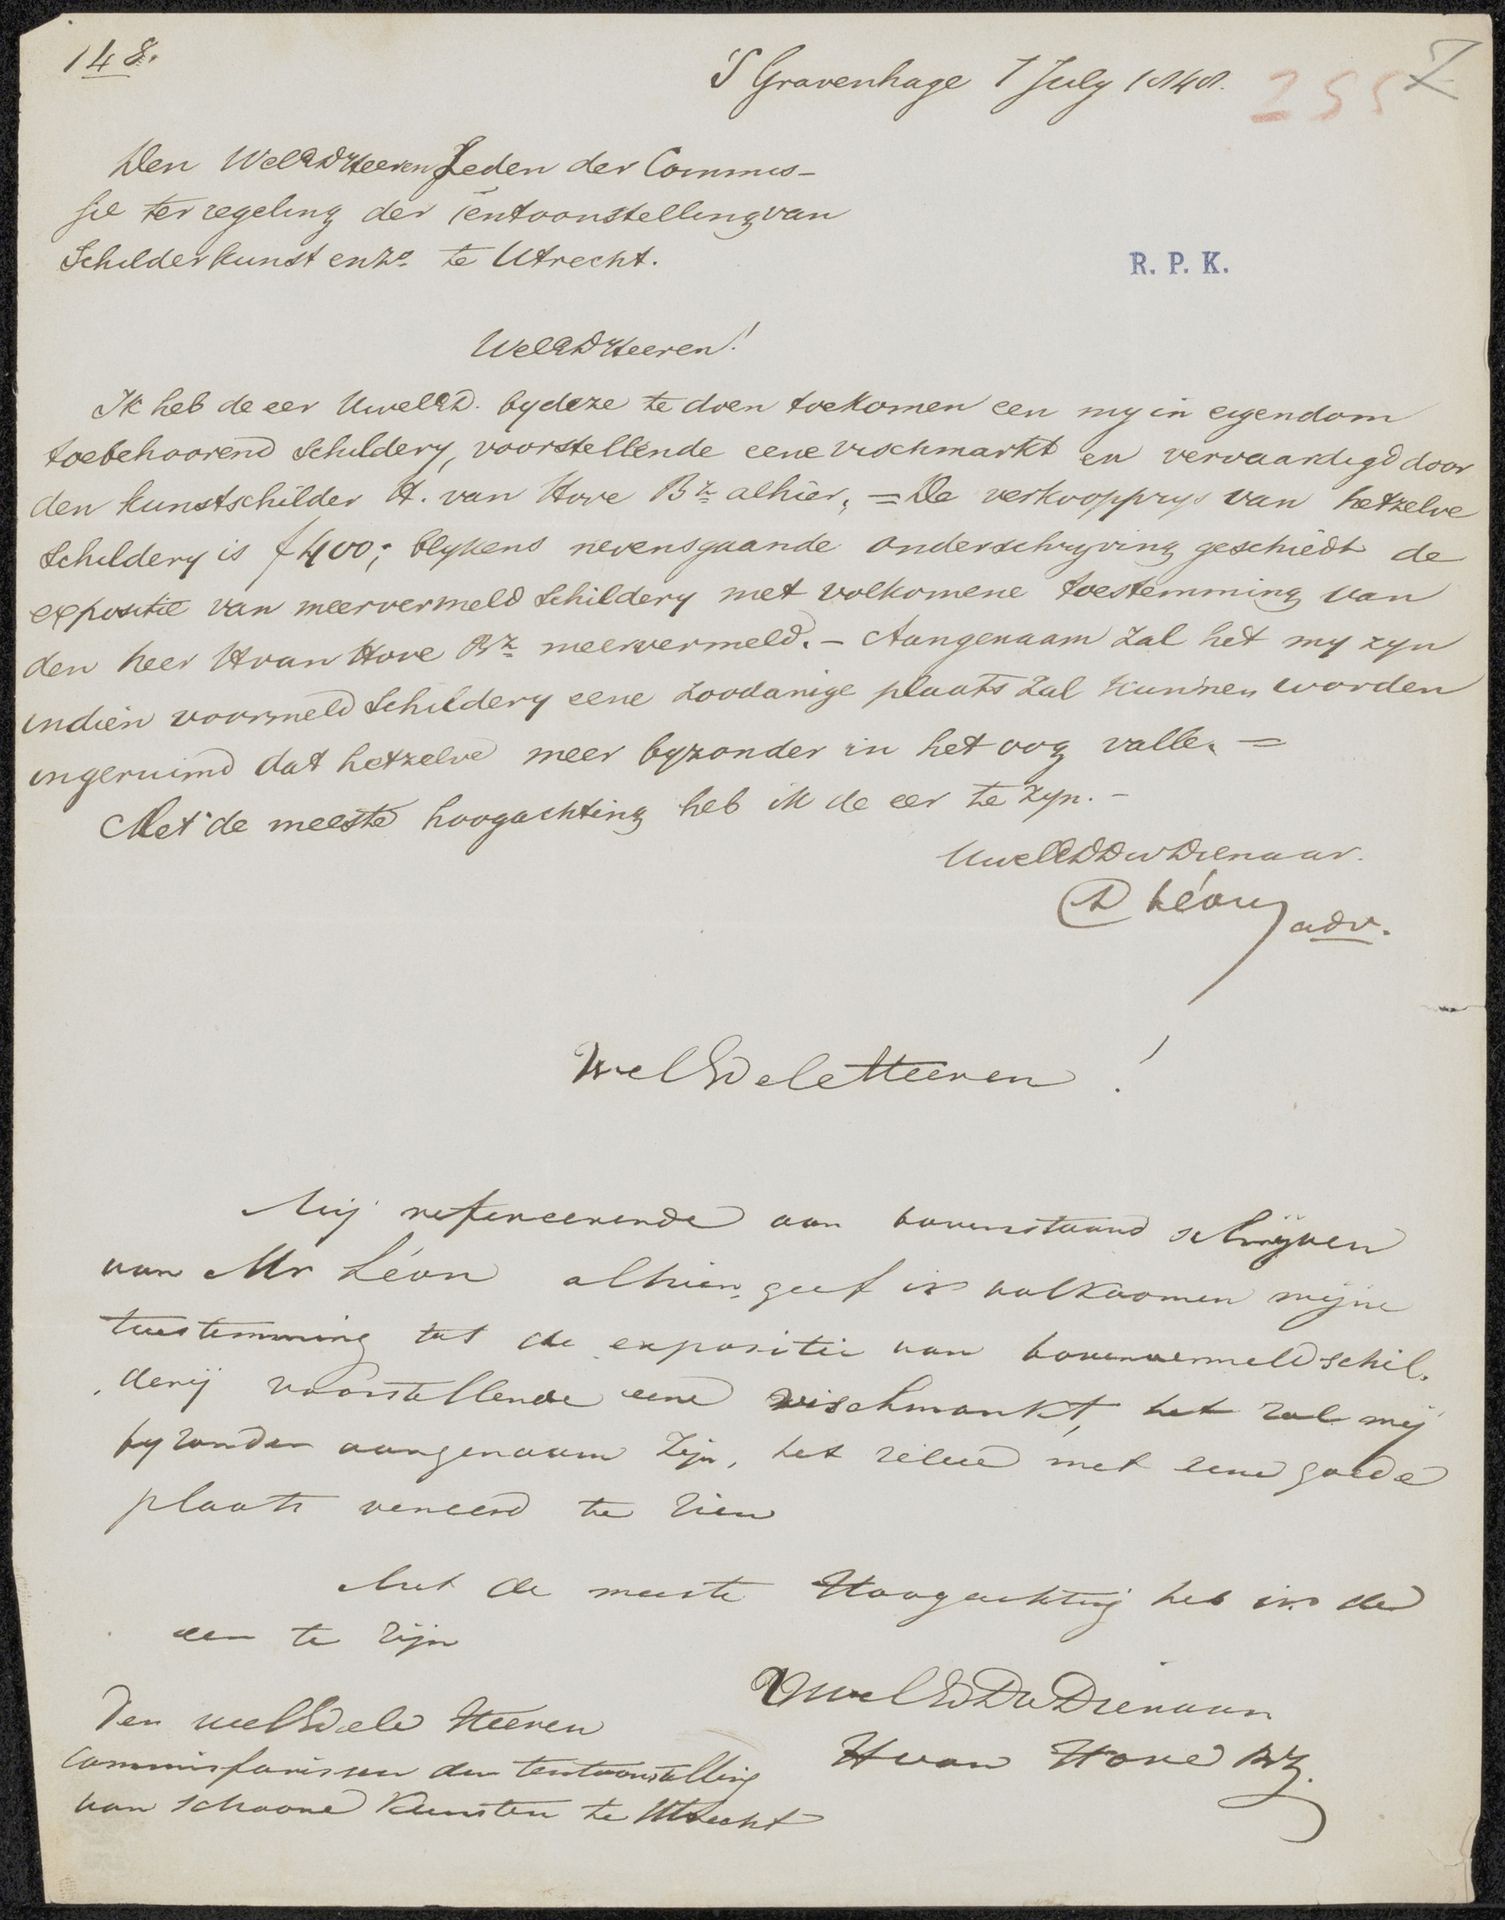 148.
S Gravenhage 7 July 1848.
255 Z
Den WelEdHeeren Leden der Commis-
sie ter regeling der tentoonstelling van
Schilderkunst enz. te Utrecht.
R. P. K.
WelEdHeeren!
Ik heb de eer UwelEd. bydeze te doen toekomen een my in eigendom
toebehoorend Schildery, voorstellende eene vischmarkt en vervaardigd door
den kunstschilder H. van Hove Bz alhier, = De verkoopprys van hetzelve
Schildery is f 400,- blykens nevensgaande onderschryving geschiedt de
expositie van meervermeld Schildery met volkomene toestemming van
den heer H van Hove Bz meervermeld. - Aangenaam zal het my zyn
indien voormeld Schildery eene zoodanige plaats zal kunnen worden
ingeruimd dat hetzelve meer byzonder in het oog valle. =
Met de meeste hoogachting heb ik de eer te zyn. -
UwelEdDwDienaar.
Léon adv.
WelEdele Heeren !
Mij refereerende aan bovenstaand schrijven
van Mr Léon alhier, geef ik volkoomen mijne
toestemming tot de expositie van bovenvermeld schil-
derij voorstellende eene vischmarkt, het zal mij
byzonder aangenaam zijn, het zelve met eene goede
plaats vereerd te zien
Met de meeste Hoogachting heb ik de
eer te zijn
UwelEdDwDienaar
H van Hove Bz.
Den welEdele Heeren
commissarissen der tentoonstelling
van schoone Kunsten te Utrecht